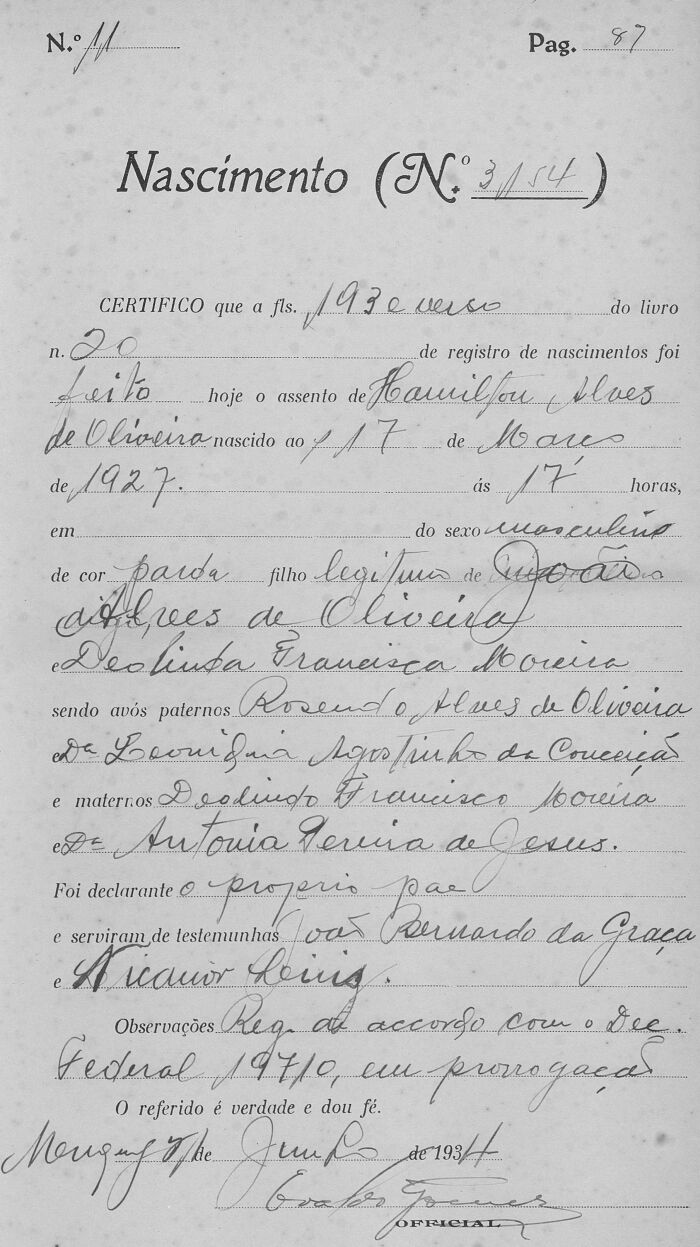 N.º 11 Pag. 87
Nascimento (N.º 3,154)
CERTIFICO que a fls. 193 e verso do livro
n. 20 de registro de nascimentos foi
feito hoje o assento de Hamilton Alves
de Oliveira nascido ao 17 de Março
de 1927. ás 17 horas,
em do sexo masculino
de cor parda filho legitimo de João
Alves de Oliveira
e Deolinda Francisca Moreira
sendo avós paternos Rosendo Alves de Oliveira
e Dª Agostinha da Conceição
e maternos Deolindo Francisco Moreira
e Dª Antonia Pereira de Jesus.
Foi declarante o proprio pae
e serviram de testemunhas João Bernardo da Graça
e Nicanor
Observações Reg. de accordo com o Dec.
Federal 19710, em prorrogação
O referido é verdade e dou fé.
de Junho de 1934
OFFICIAL